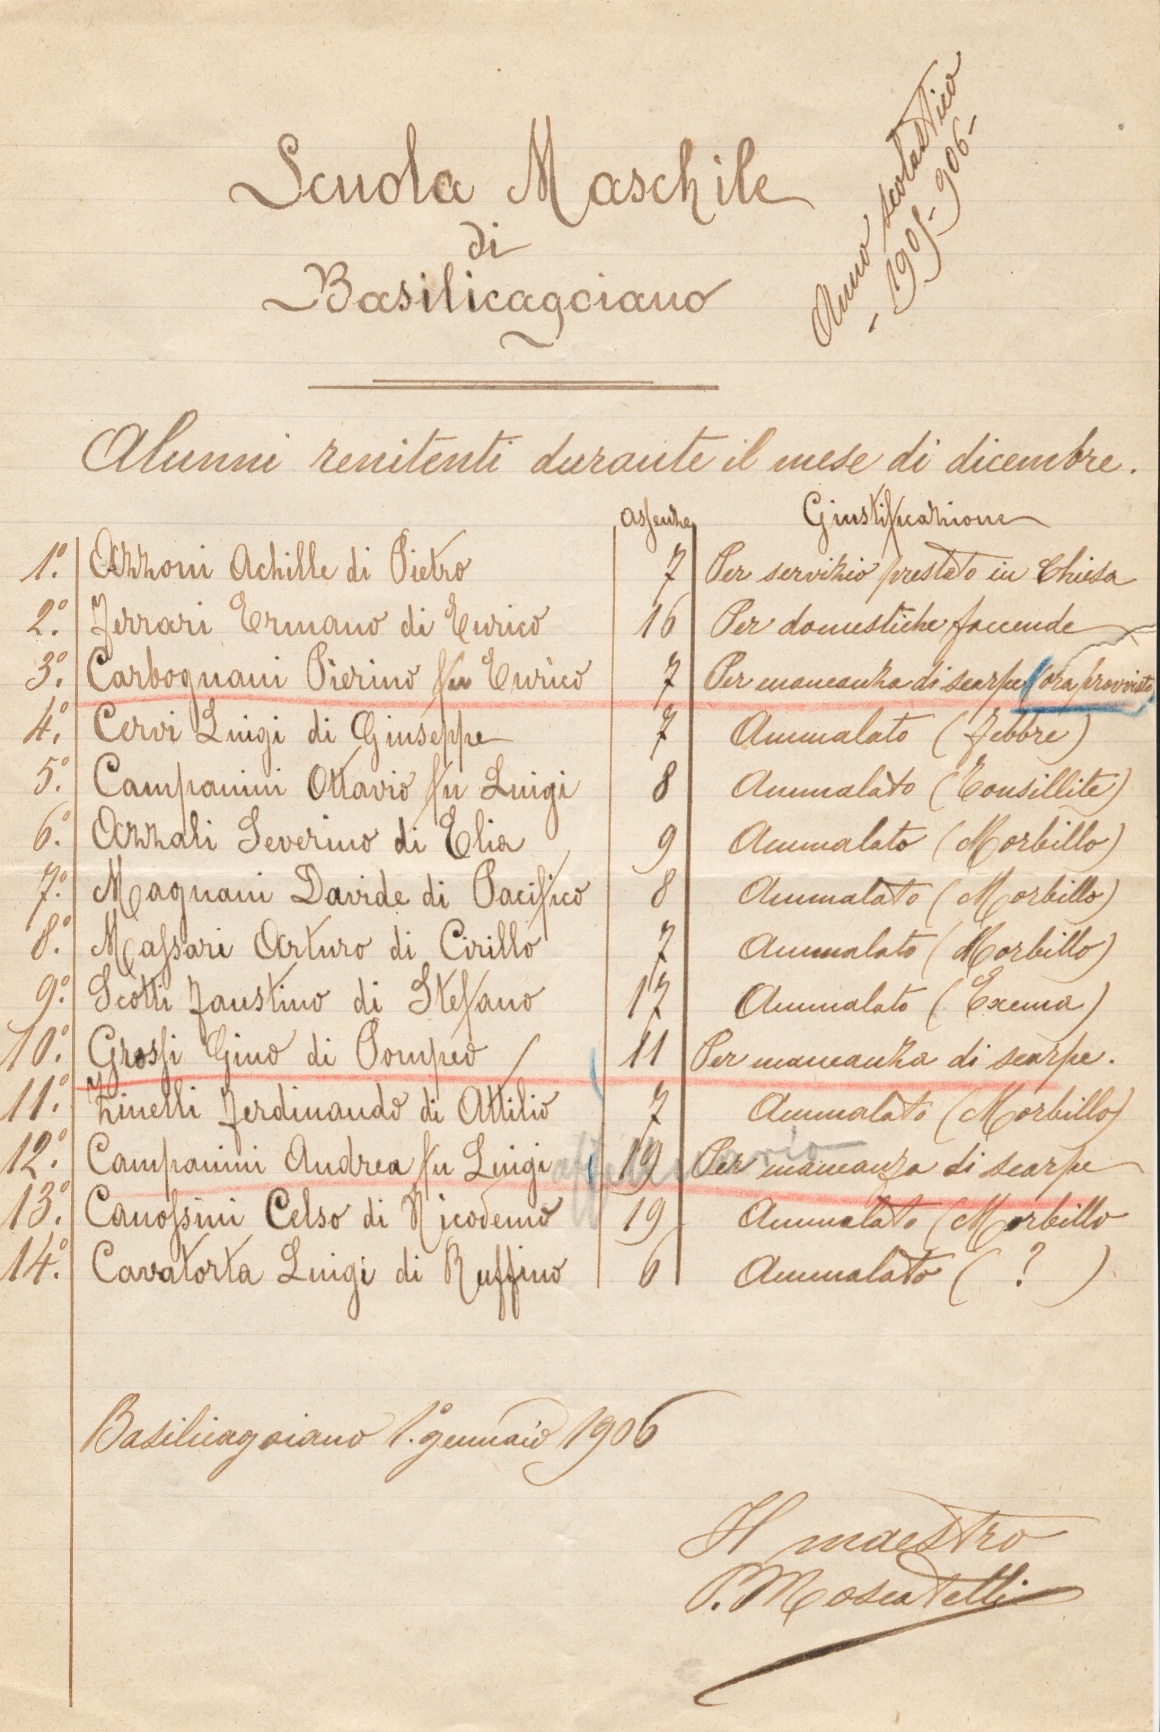 Anno scolastico
- 1905-906-
Scuola Maschile
di
Basilicagoiano
Alunni renitenti durante il mese di dicembre.
assenze Giustificazione
1.° Azzoni Achille di Pietro 7 Per servizio prestato in Chiesa
2.° Ferrari Ermano di Enrico 16 Per domestiche faccende
3.° Carbognani Pierino fu Enrico 7 Per mancanza di scarpe (ora provvisto
4.° Cervi Luigi di Giuseppe 7 Ammalato (Febbre)
5.° Campanini Ottavio fu Luigi 8 Ammalato (Tonsillite)
6.° Azzali Severino di Elia 9 Ammalato (Morbillo)
7.° Magnani Davide di Pacifico 8 Ammalato (Morbillo)
8.° Massari Arturo di Cirillo 7 Ammalato (Morbillo)
9.° Scotti Faustino di Stefano 17 Ammalato (Exema)
10.° Grossi Gino di Pompeo 11 Per mancanza di scarpe.
11.° Zinelli Ferdinando di Attilio 7 Ammalato (Morbillo)
12.° Campanini Andrea fu Luigi 19 Per mancanza di scarpe
13.° Canossini Celso di Nicodemo 19 Ammalato (Morbillo
14.° Cavatorta Luigi di Ruffino 6 Ammalato ( ? )
Basilicagoiano 1.° gennaio 1906
Il maestro
P. Moscatelli